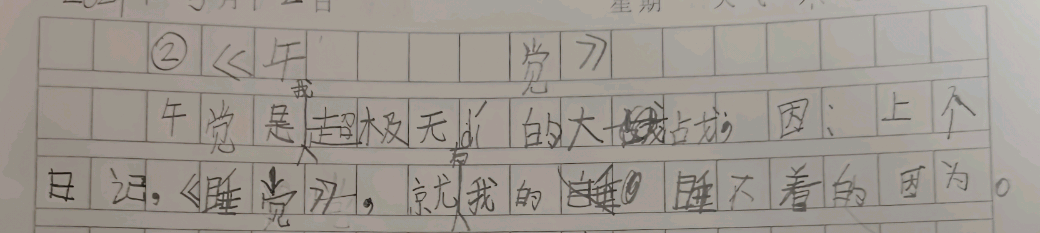 日 星期
②《午觉》
午觉是我超极无dí的大战，因：上个
日记。《睡觉》，就有我的睡不着的因为。